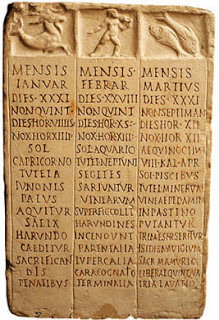 MENSIS
IANVAR
DIES·XXXI
NON·QVINT
DIES·HOR·VIIII
NOX·HOR·XIIII
SOL
CAPRICORNO
TVTELA
IVNONIS
PALVS
AQVITVR
SALIX
HARVNDO
CAEDITVR
SACRIFICAN
DIS
PENATIBVS
MENSIS
FEBRAR
DIES·XXVIII
NON·QVINT
DIES·HOR·XS
NOX·HOR
SOL·AQVARIO
TVTEL·NEPTVNI
SEGETES
SARIVNTVR
VINEARVM
SVPERFIC·COLIT
HARVNDINES
INCENDVNT
PARENTALIA
LVPERCALIA
CARA·COGNATIO
TERMINALIA
MENSIS
MARTIVS
DIES·XXXI
NON·SEPTIMAN
DIES·HOR·XII
NOX·HOR·XII
AEQVINOCTIVM
VIII·KAL·APR
SOL·PISCIBVS
TVTEL·MINERVAE
VINEAE·PEDAMIN
IN·PASTINO
PVTANTVR
TRIMESTR·SERITVR
SACR·MAMVRIO
LIBERAL·QVINQVA
TRIA·LAVATIO